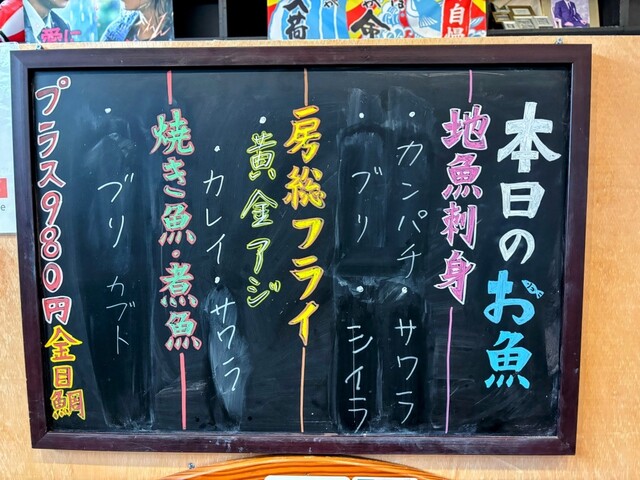 本日のお魚
地魚刺身
・カンパチ・サワラ
・ブリ・シイラ
房総フライ
・黄金アジ
・カレイ・サワラ
焼き魚・煮魚
・ブリカブト
プラス980円金目鯛
入荷
自慢